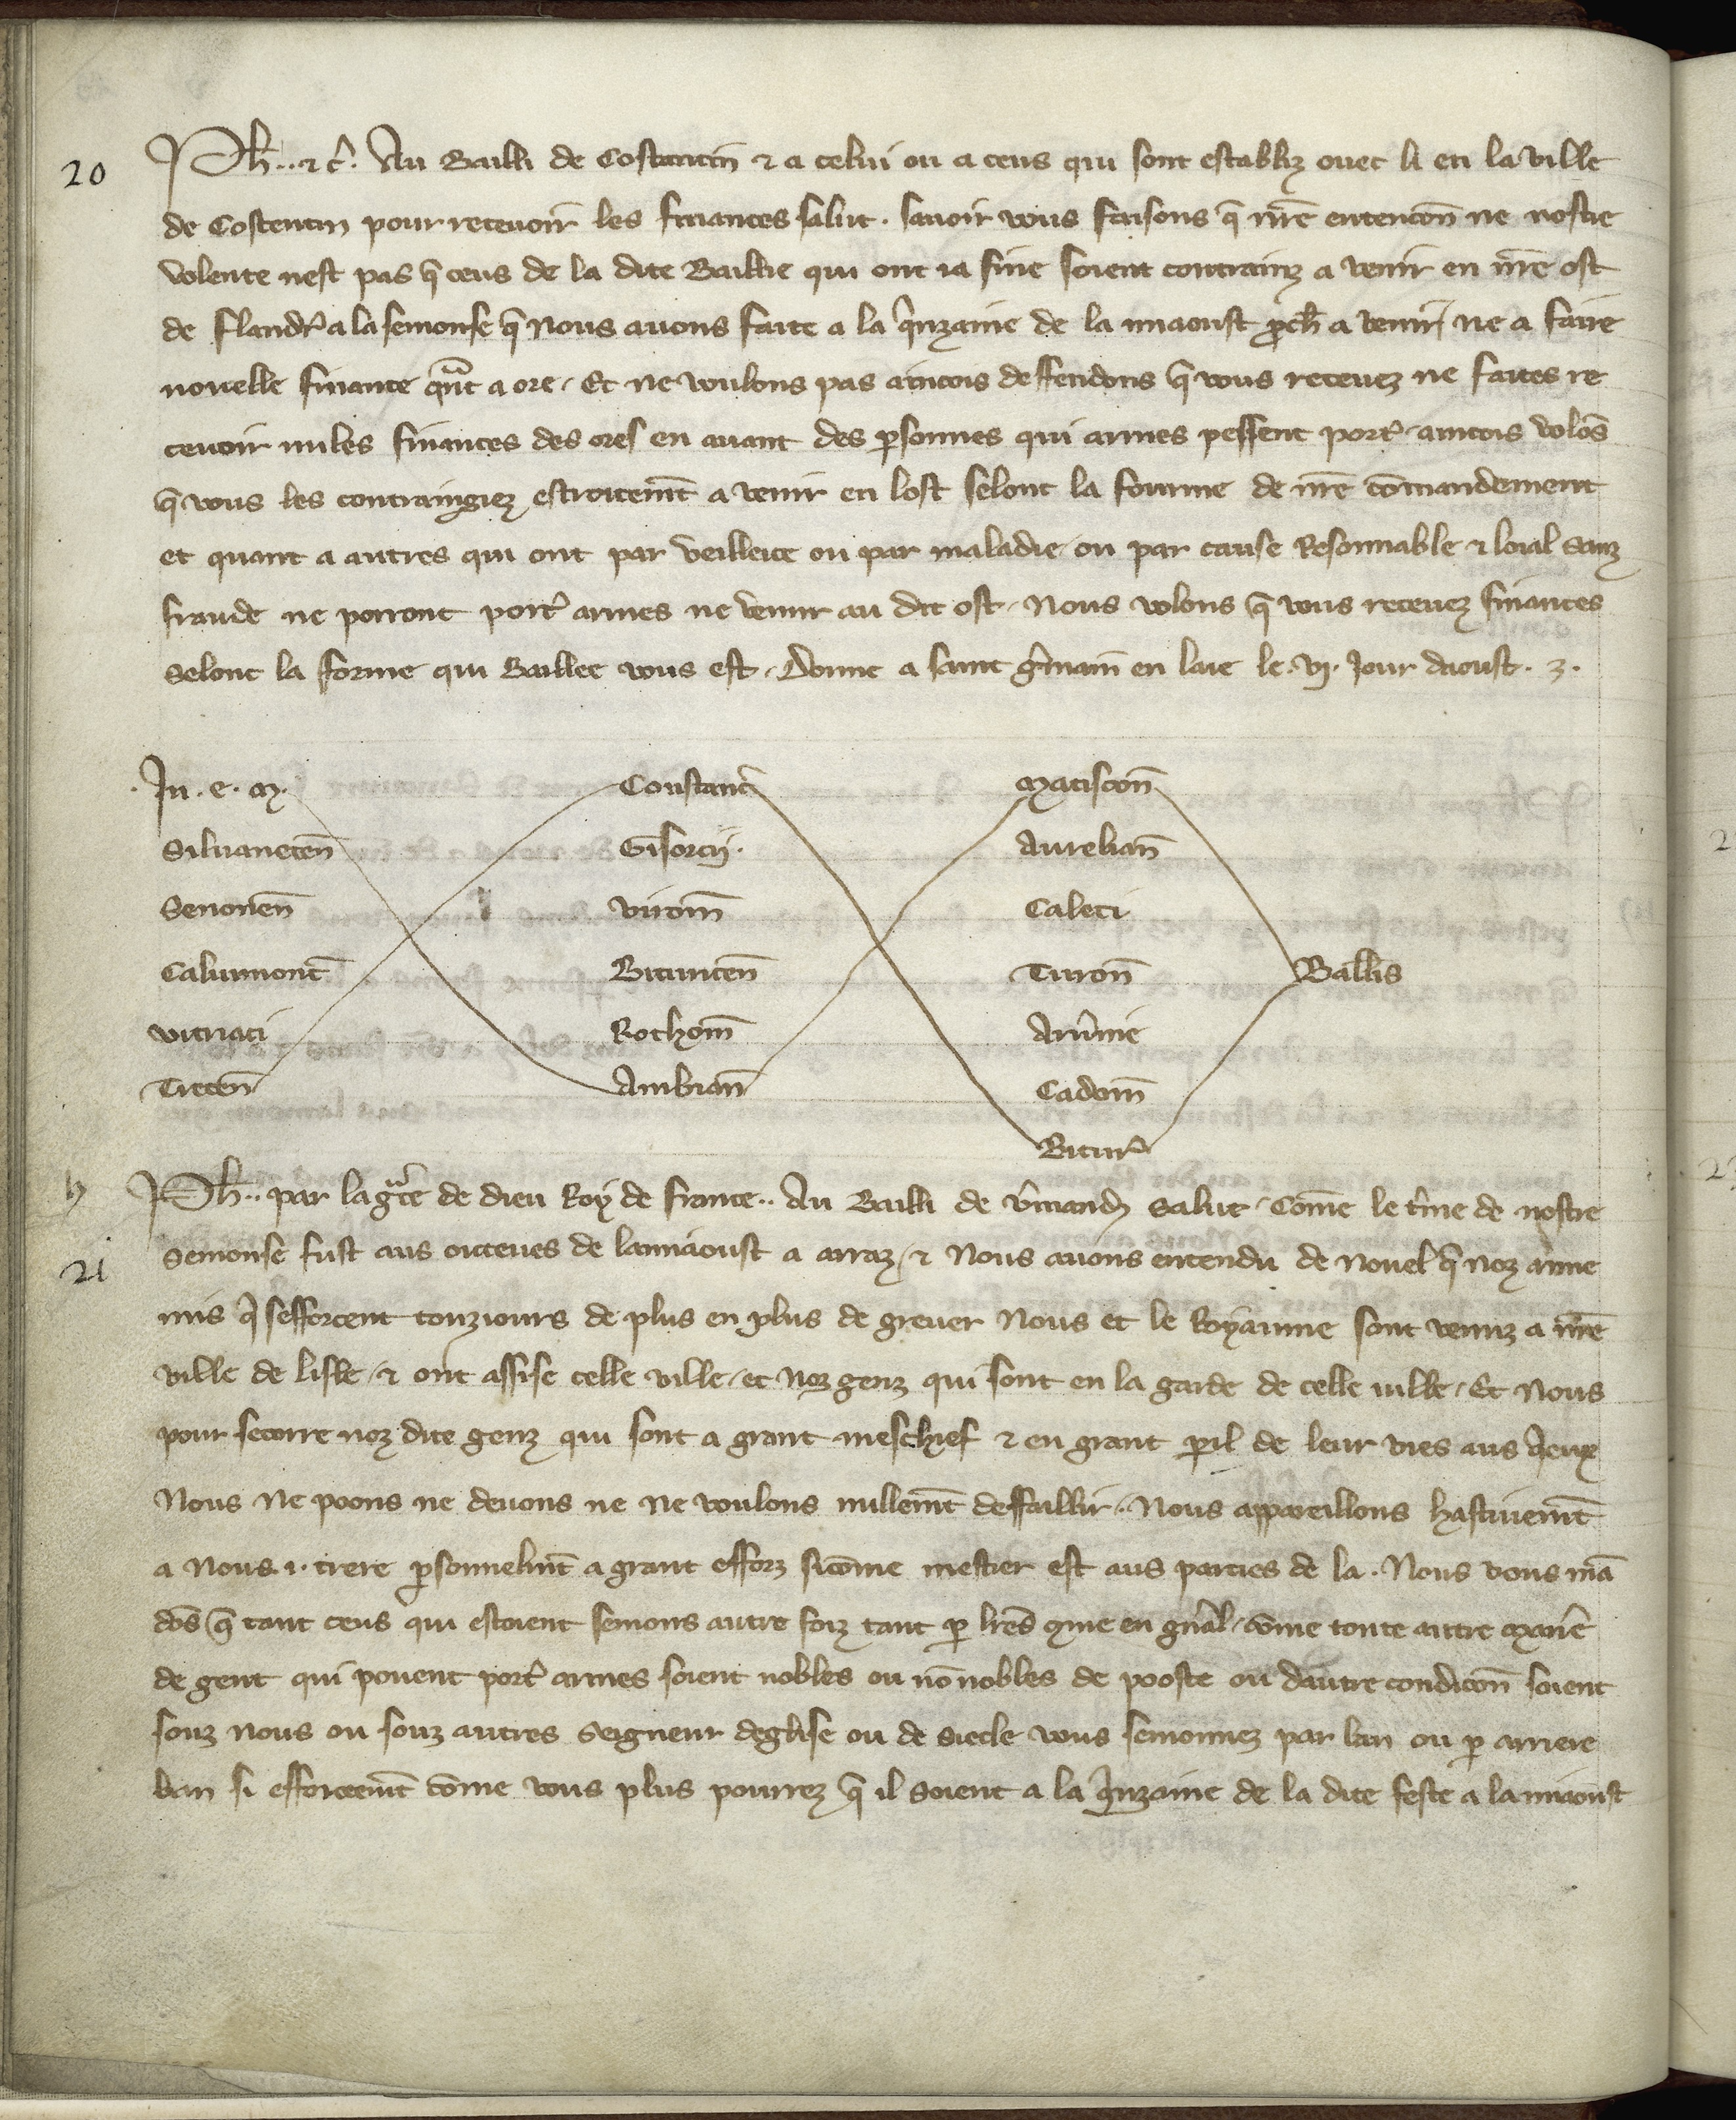 20
Ph̄.. ⁊ c̉. Au Bailli de Costantin̄ ⁊ a celui ou a ceus qui sont establiz ouec li en la ville
de Costentin pour receuoir les finances salut. sauoir vous faisons q̄ nr̄e entencōn ne nostre
volente nest pas q̄ ceus de la dite Baillie qui ont ia fine soient contrainz a venir en nr̄e ost
de flandr̉ a la semonse q̄ Nous auons faite a la q̉nzaine de la miaoust ꝓch̄ a venir / ne a faire
nouelle finance qᵃnt a ore / Et ne voulons pas aincois deffendons q̄ vous receuez ne faites re
ceuoir nules finances des ores en auant des ꝑsonnes qui armes pessent port̉ / aincois volōs
q̄ vous les contraingiez estroitem̄t a venir en lost selonc la fourme de nr̄e cōmandement
et quant a autres qui ont par veillece ou par maladie / ou par cause Resonnable ⁊ loial sanz
fraude ne porront port̉ armes ne venir au dit ost / Nous volons q̄ vous receuez finances
selonc la forme qui Baillee vous est / Donne a saint g̉main̄ en laie le .vj. Jour daoust . 3.
.In . e . m.
Siluaneten̄
Senonen̄
Caluimont̄
vitriaci
Trecen̄
Constanc̉
Gisorcij.
virom̄
Bituricen̄
Rothom̄
Ambian̄
Matiscon̄
Aurelian̄
Caleti
Turon̄
Aruernie
Cadom̄
Bitur̉
Ballis
h
Ph̄.. par la gᵃce de dieu Roy de france.. Au Bailli de v̉mand salut / Cōme le t̉me de nostre
21
semonse fust aus octeues de lamiaoust a arraz / ⁊ Nous auons entendu de nouel q̄ noz anne
mis q̉ sefforcent touziours de plus en plus de greuer Nous et le Royaume sont venuz a nr̄e
ville de lisle / ⁊ ont assise celle ville / et noz genz qui sont en la garde de celle uille / Et Nous
pour secorre noz dite genz qui sont a grant meschief ⁊ en grant ꝑil de leur vies aus q̉eux
Nous Ne poons ne deuons ne Ne voulons nullem̄t deffaillir / Nous appareillons hastiuem̄t
a Nous .i. trere ꝑsonnelmt̄ a grant efforz sicōme mestier est aus parties de la. Nous vous mā
dōs q̄ tant ceus qui estoient semons autre foiz tant ꝑ lr̄es cōme en gn̄al / cōme toute autre Maniē
de gent qui pouent port̉ armes soient nobles ou nō nobles de pooste ou dautre condicōn soient
souz nous ou souz autres Seigneur deglise ou de siecle vous semonnez par ban ou ꝑ arriere
ban si efforceem̄t cōme vous plus pourrez q̄ il soient a la q̉nzaine de la dite feste a lamiaoust